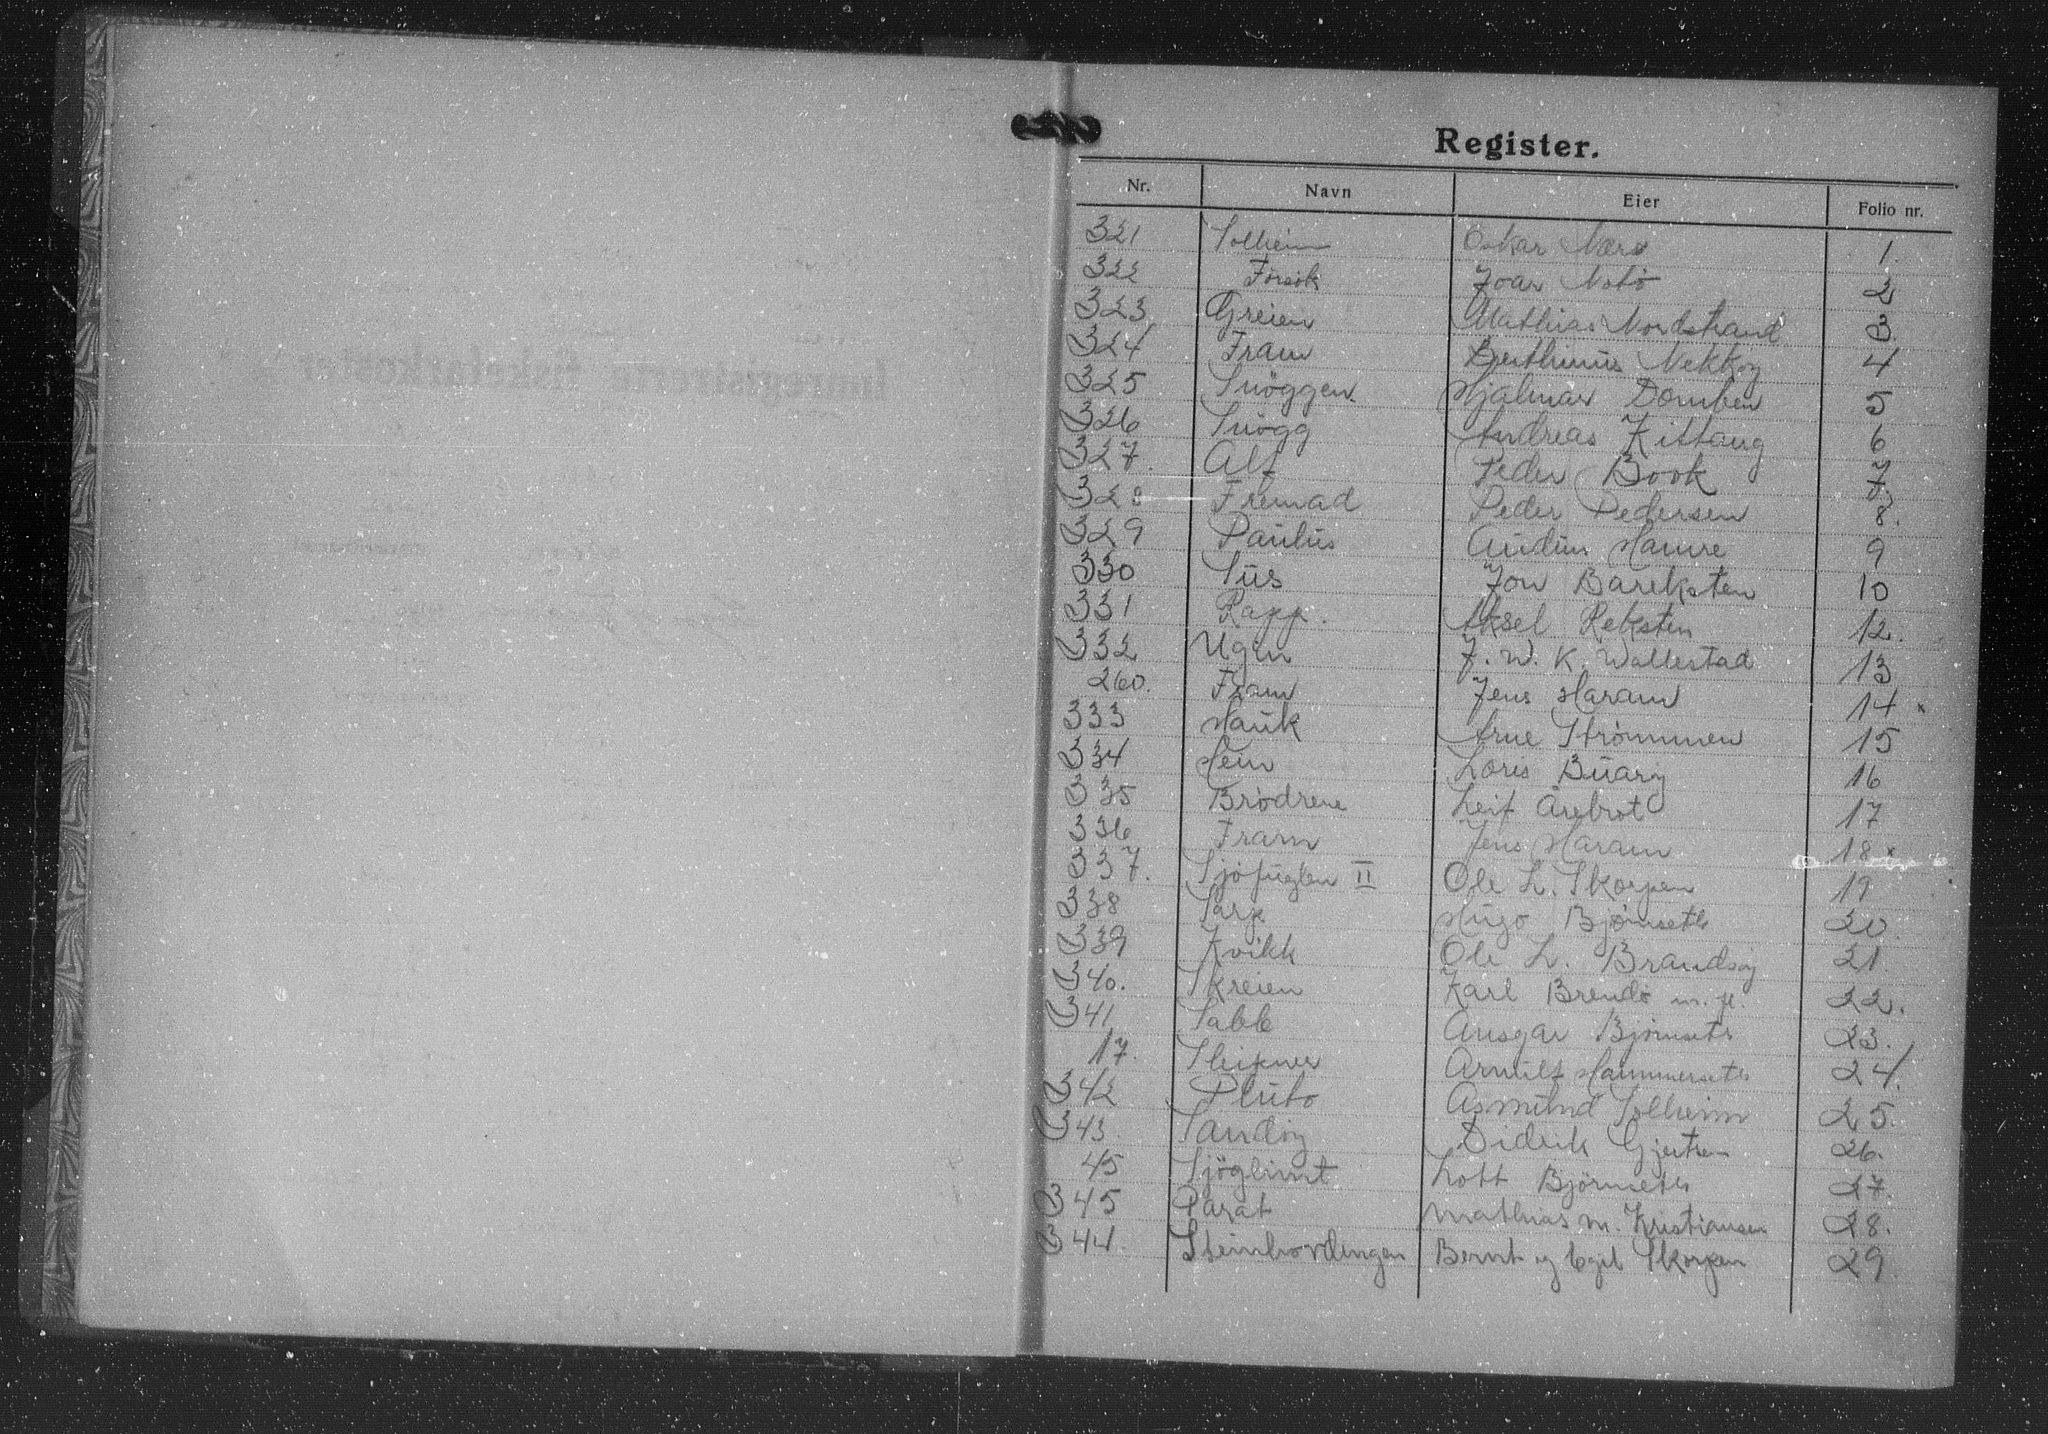 Register.
Nr. Navn Eier Folio nr.
321 Solheim Oskar Næss 1.
322 Forsøk Joar Notö 2
323 Greien Mathias Nordstrand 3
324 Fram Berthinus Nekköy 4
325 Snöggen Hjalmar Domben 5
326 Snögg Andreas Kittang 6
327. Alf Peder Book 7.
328 Fremad Peder Pedersen 8.
329 Paulus Audun Hamre 9
330 Sus Jon Bareksten 10
331 Rapp. Aksel Reksten 12.
332 Ugen J. W. K. Wallestad 13
260. Fram Jens Haram 14
333 Hauk Arne Strømmen 15
334 Hein Loris Buarøy 16
335 Brödrene Leif Årebrot 17
336 Fram Jens Haram 18
337. Sjöfuglen II Ole L. Skorpen 19
338 Sarp Hugo Bjørnseth 20.
339 Kvikk Ole L. Brandsøy 21
340. Skreien Karl Brendö m. fl. 22.
341 Sabb Ansgar Bjørnseth 23.
17. Sleipner Arnulf Hammerseth 24.
342 Pluto Asmund Solheim 25.
343. Sandöy Didrik Gjertsen 26.
45 Sjöglimt Lott Bjørnseth 27.
345 Parat Mathias M. Kristiansen 28.
344. Steinhovdingen Bernt og Egil Skorpen 29.